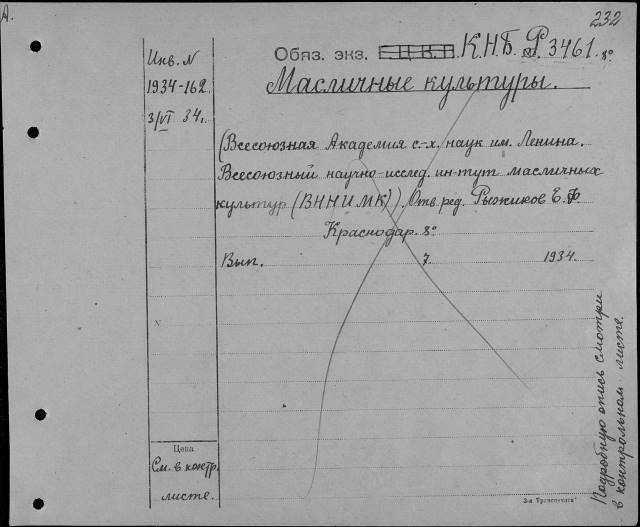 А.
232
Инв. N
1934-162
3/VI 34 г.
Обяз. экз. Е.Ц.В.П. К.Н.Б. Ф. 3461. 8°
Масличные культуры.
(Всесоюзная Академия с.-х. наук им. Ленина.
Всесоюзный научно-исслед. ин-тут масличных
культур (ВННИМК)). Отв. ред. Рыжиков Е. Ф.
Краснодар. 8°
Вып. 7. 1934.
N
Цена
См. в контр.
листе.
Подробную опись смотри
в контрольном листе.